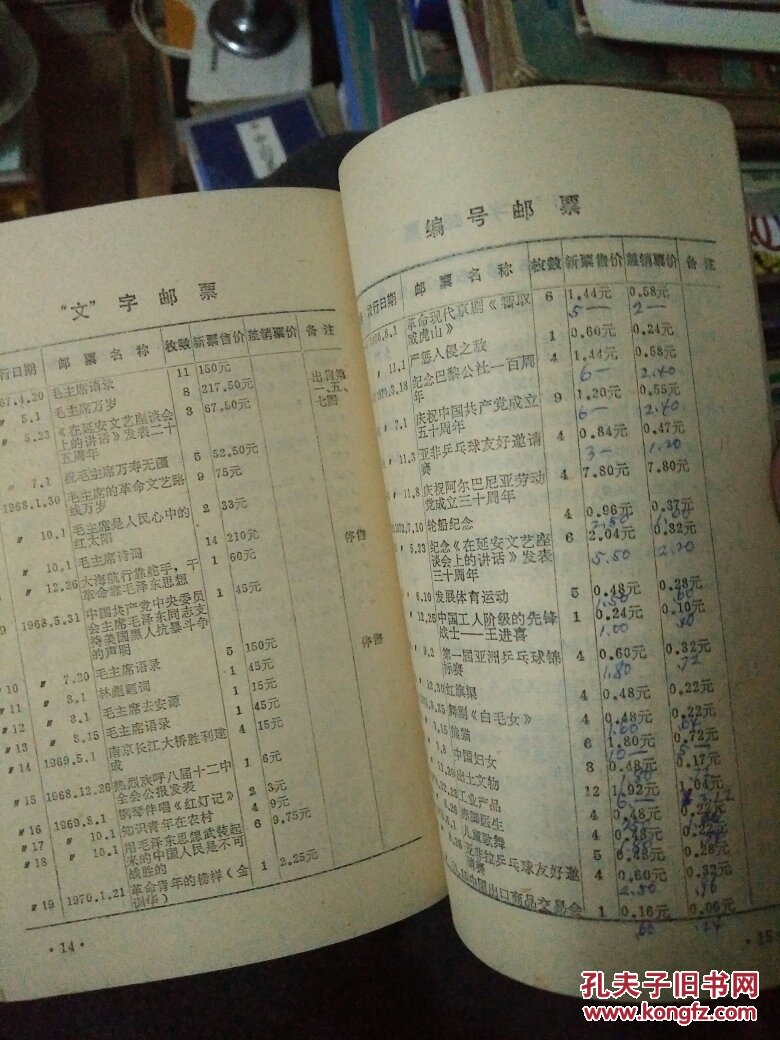 “文”字邮票
行日期 邮票名称 枚数 新票售价 盖销票价 备注
67.4.20 毛主席语录 11 150元
〃 5.1 毛主席万岁 8 217.50元 出售第一、五、七图
〃 5.23 《在延安文艺座谈会 3 67.50元
上的讲话》发表二十
五周年
〃 7.1 祝毛主席万寿无疆 5 52.50元
1968.1.30 毛主席的革命文艺路 9 75元
线万岁
〃 10.1 毛主席是人民心中的 2 33元
红太阳
〃 10.1 毛主席诗词 14 210元 停售
〃 12.26 大海航行靠舵手,干 1 60元
革命靠毛泽东思想
9 1968.5.31 中国共产党中央委员 1 45元
会主席毛泽东同志支
持美国黑人抗暴斗争
的声明
10 〃 7.20 毛主席语录 5 150元 停售
〃11 〃 8.1 林彪题词 1 45元
〃12 〃 8.1 毛主席去安源 1 15元
〃13 〃 8.15 毛主席语录 1 45元
〃14 1969.5.1 南京长江大桥胜利建 4 15元
成
〃15 1968.12.26 热烈欢呼八届十二中 1 6元
全会公报发表
〃16 1969.8.1 钢琴伴唱《红灯记》 2 3元
〃17 〃 10.1 知识青年在农村 4 9元
〃18 〃 10.1 用毛泽东思想武装起 6 9.75元
来的中国人民是不可
战胜的
〃19 1970.1.21 革命青年的榜样(金 1 2.25元
训华)
·14·
编号邮票
发行日期 邮票名称 枚数 新票售价 盖销票价 备注
1970.8.1 革命现代京剧《智取 6 1.44元 0.58元
威虎山》 5— 2—
〃 11.1 严惩入侵之敌 1 0.60元 0.24元
1971.3.18 纪念巴黎公社一百周 4 1.44元 0.58元
年 6— 2.40
〃 7.1 庆祝中国共产党成立 9 1.20元 0.55元
五十周年 6— 2.40
〃 11.3 亚非乒乓球友好邀请 4 0.84元 0.47元
赛 3— 1.20
〃 11.8 庆祝阿尔巴尼亚劳动 4 7.80元 7.80元
党成立三十周年
1972.7.10 轮船纪念 4 0.96元 0.37元
〃 5.23 纪念《在延安文艺座 6 2.04元 0.82元
谈会上的讲话》发表 5.50 2.20
三十周年
〃 6.10 发展体育运动 5 0.48元 0.28元
1.50
〃 12.25 中国工人阶级的先锋 1 0.24元 0.10元
战士——王进喜 1.00 40
〃 9.2 第一届亚洲乒乓球锦 4 0.60元 0.32元
标赛 1.80 .72
〃 12.30 红旗渠 4 0.48元 0.22元
9.25 舞剧《白毛女》 4 0.48元 0.22元
1.15 熊猫 6 1.80元 0.72元
3.8 中国妇女 3 0.48元 0.17元
11.20 出土文物 12 1.92元 1.04元
工业产品 4 0.48元
6.26 赤脚医生 4 0.48元
6.1 儿童歌舞
8.25 亚非拉乒乓球友好邀 4 0.60元 0.32元
请赛 2.50
中国出口商品交易会 1 0.16元 0.06元
.24
孔夫子旧书网
www.kongfz.com